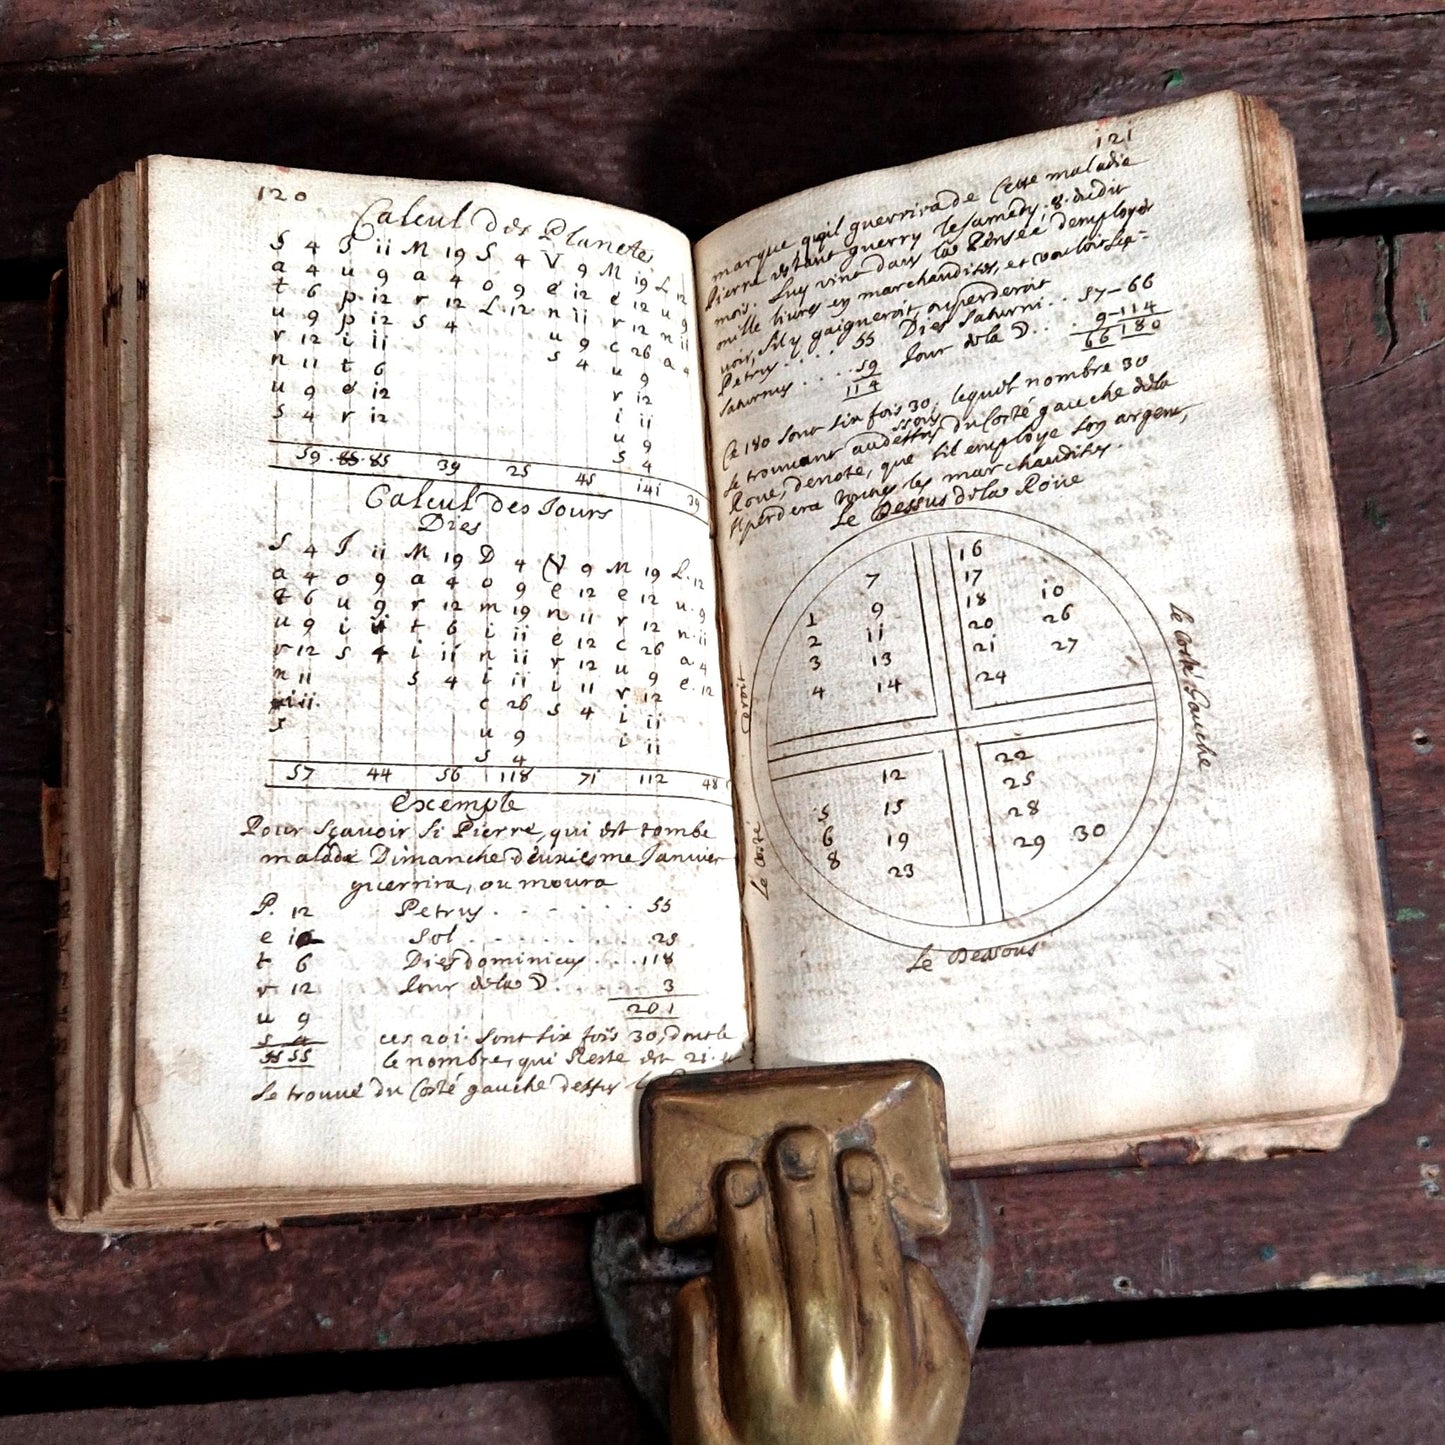 120
Calcul des Planetes
S 4 J ii M 19 S 4 V 9 M 19 L 12
a 4 u 9 a 4 o 9 e 12 e 12 u 9
t 6 p 12 r 12 L 12 n ii r 12 n ii
u 9 p 12 s 4 u 9 c 26 a 4
r 12 i ii s 4 u 9
n 11 t 6 r 12
u 9 e 12 i ii
s 4 r 12 u 9
s 4
59 85 39 25 45 141 39
Calcul des Jours
Dies
S 4 J ii M 19 D 4 V 9 M 19 L 12
a 4 o 9 a 4 o 9 e 12 e 12 u 9
t 6 u 9 r 12 m 19 n 11 r 12 n ii
u 9 i ii t 6 i ii e 12 c 26 a 4
r 12 s 4 i ii n ii r 12 u 9 e 12
n 11 s 4 i ii i 11 r 12
i ii c 26 s 4 i ii
s u 9 i ii
s 4
57 44 56 118 71 112 48
Exemple
Pour Sçauoir si Pierre, qui est tombe
malade Dimanche deuxiesme Januier
guerrira, ou moura
P. 12 Petrus 55
e Sol 25
t 6 Dies dominicus 118
r 12 Jour de la D 3
u 9 201
s 4 ces 201 sont six fois 30, dont le
55 55 le nombre, qui Reste est 21
se trouue du Costé gauche dessus
121
marque qu'il guerrira de Cette maladie
Pierre estant guerry le samedy 8 dudit
mois. Luy vint dans la Pensée d'employer
mille liures en marchandises, et vouloir sça-
uoir, s'il y gaigneroit, ou perderoit
Petrus 55 Dies Saturni 57–66
Saturnus 59 Jour de la D 9–114
114 66 180
Ce 180 sont six fois 30, lequel nombre 30
ssous
se trouuant au dessus du Costé gauche de la
Roue, denote, que s'il employe son argent,
Il perdera toutes les marchandises.
Le Dessus de la Roüe
7 16
1 9 17
2 11 18 10
3 13 20 26
4 14 21 27
24
Le Costé Gauche
Le Costé droit
12 22
5 15 25
6 19 28
8 23 29 30
Le Dessous